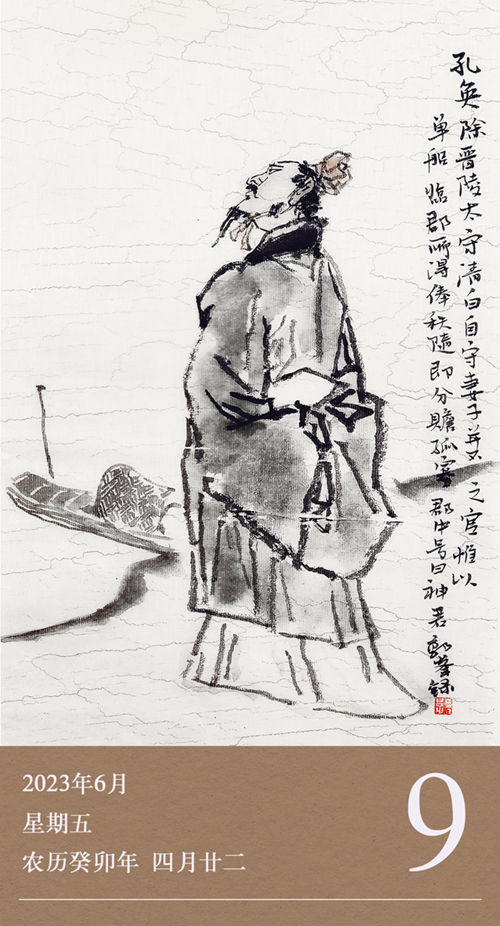 孔奂除晋陵太守清白自守妻子并不之官惟以
单船臨郡所得俸秩隨即分贍孤寡郡中号曰神君
2023年6月
星期五
农历癸卯年 四月廿二
9